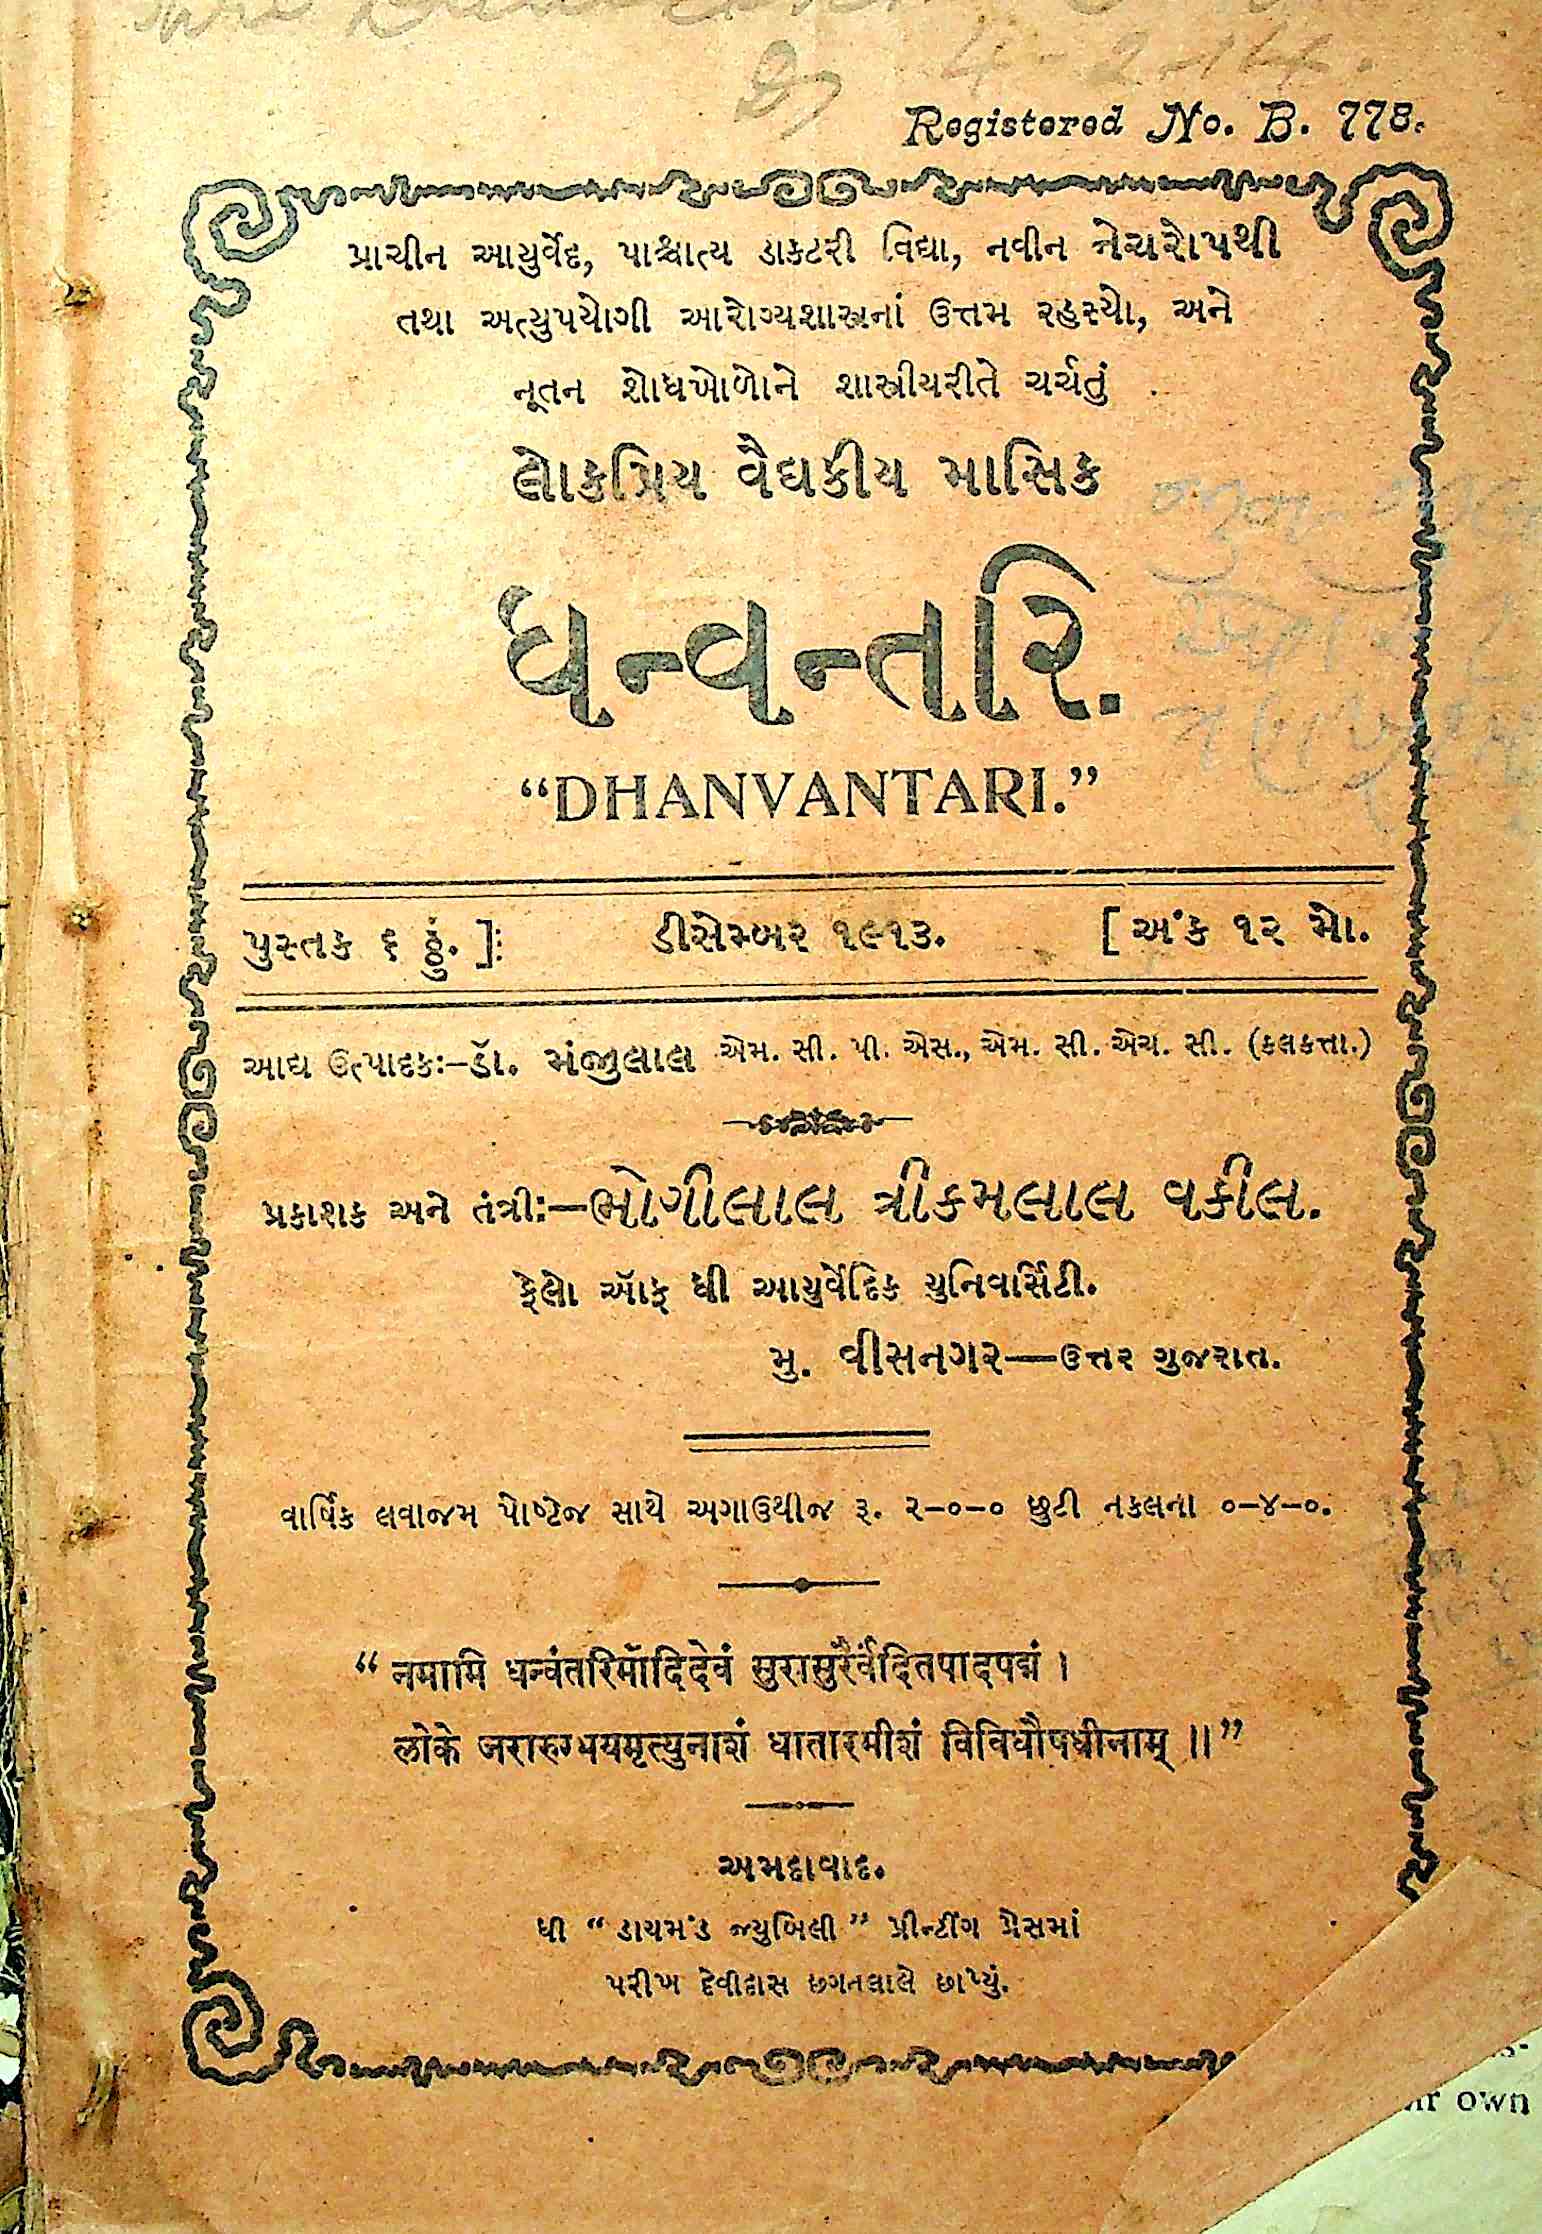 4-2-14.
Registered No. B. 778.
પ્રાચીન આયુર્વેદ, પાશ્ચાત્ય ડાકટરી વિદ્યા, નવીન નેચરોપથી
તથા અત્યુપયોગી આરોગ્યશાસ્ત્રનાં ઉત્તમ રહસ્યો, અને
નૂતન શોધખોળોને શાસ્ત્રીયરીતે ચર્ચતું
લોકપ્રિય વૈદ્યકીય માસિક
ધન્વન્તરિ.
“DHANVANTARI.”
પુસ્તક ૬ ઠું. ] ડીસેમ્બર ૧૯૧૩. [ અંક ૧૨ મો.
આદ્ય ઉત્પાદકઃ-ડૉ. મંજુલાલ એમ. સી. પી. એસ., એમ. સી. એચ. સી. (કલકત્તા.)
પ્રકાશક અને તંત્રીઃ—ભોગીલાલ ત્રીકમલાલ વકીલ.
ફેલો ઑફ ધી આયુર્વેદિક યુનિવર્સિટી.
મુ. વીસનગર—ઉત્તર ગુજરાત.
વાર્ષિક લવાજમ પોષ્ટેજ સાથે અગાઉથીજ રૂ. ૨-૦-૦ છુટી નકલના ૦-૪-૦.
“ नमामि धन्वंतरिमादिदेवं सुरासुरैर्वंदितपादपद्मं ।
लोके जरारुग्भयमृत्युनाशं धातारमीशं विविधौषधीनाम् ॥”
અમદાવાદ.
ધી “ ડાયમંડ જ્યુબિલી ” પ્રીન્ટીંગ પ્રેસમાં
પરીખ દેવીદાસ છગનલાલે છાપ્યું.
own